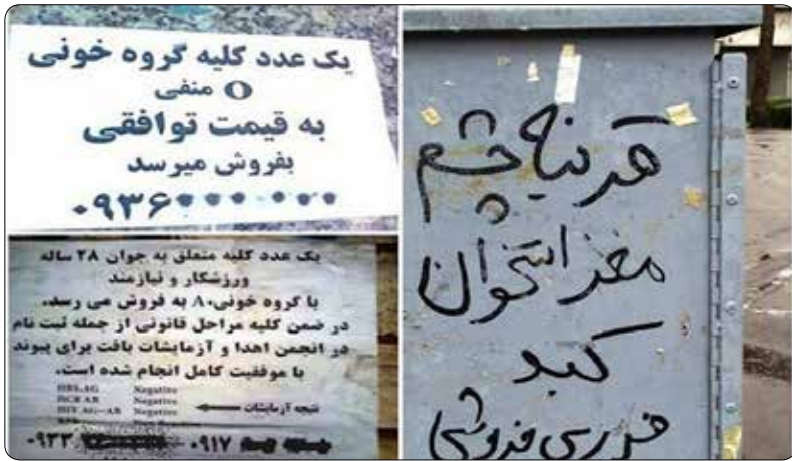 یک عدد کلیه گروه خونی
O منفی
به قیمت توافقی
بفروش میرسد
۰۹۳۶
یک عدد کلیه متعلق به جوان ۲۸ ساله
ورزشکار و نیازمند
با گروه خونی A۰ به فروش می رسد.
در ضمن کلیه مراحل قانونی از جمله ثبت نام
در انجمن اهدا و آزمایشات بافت برای پیوند
با موفقیت کامل انجام شده است.
HBS.AG Negative
HCR AB Negative
HIV AG-AB Negative
نتیجه آزمایشات
۰۹۳۳ ۰۹۱۷
قرنیه چشم
مغز استخوان
کبد
فوری فروشی